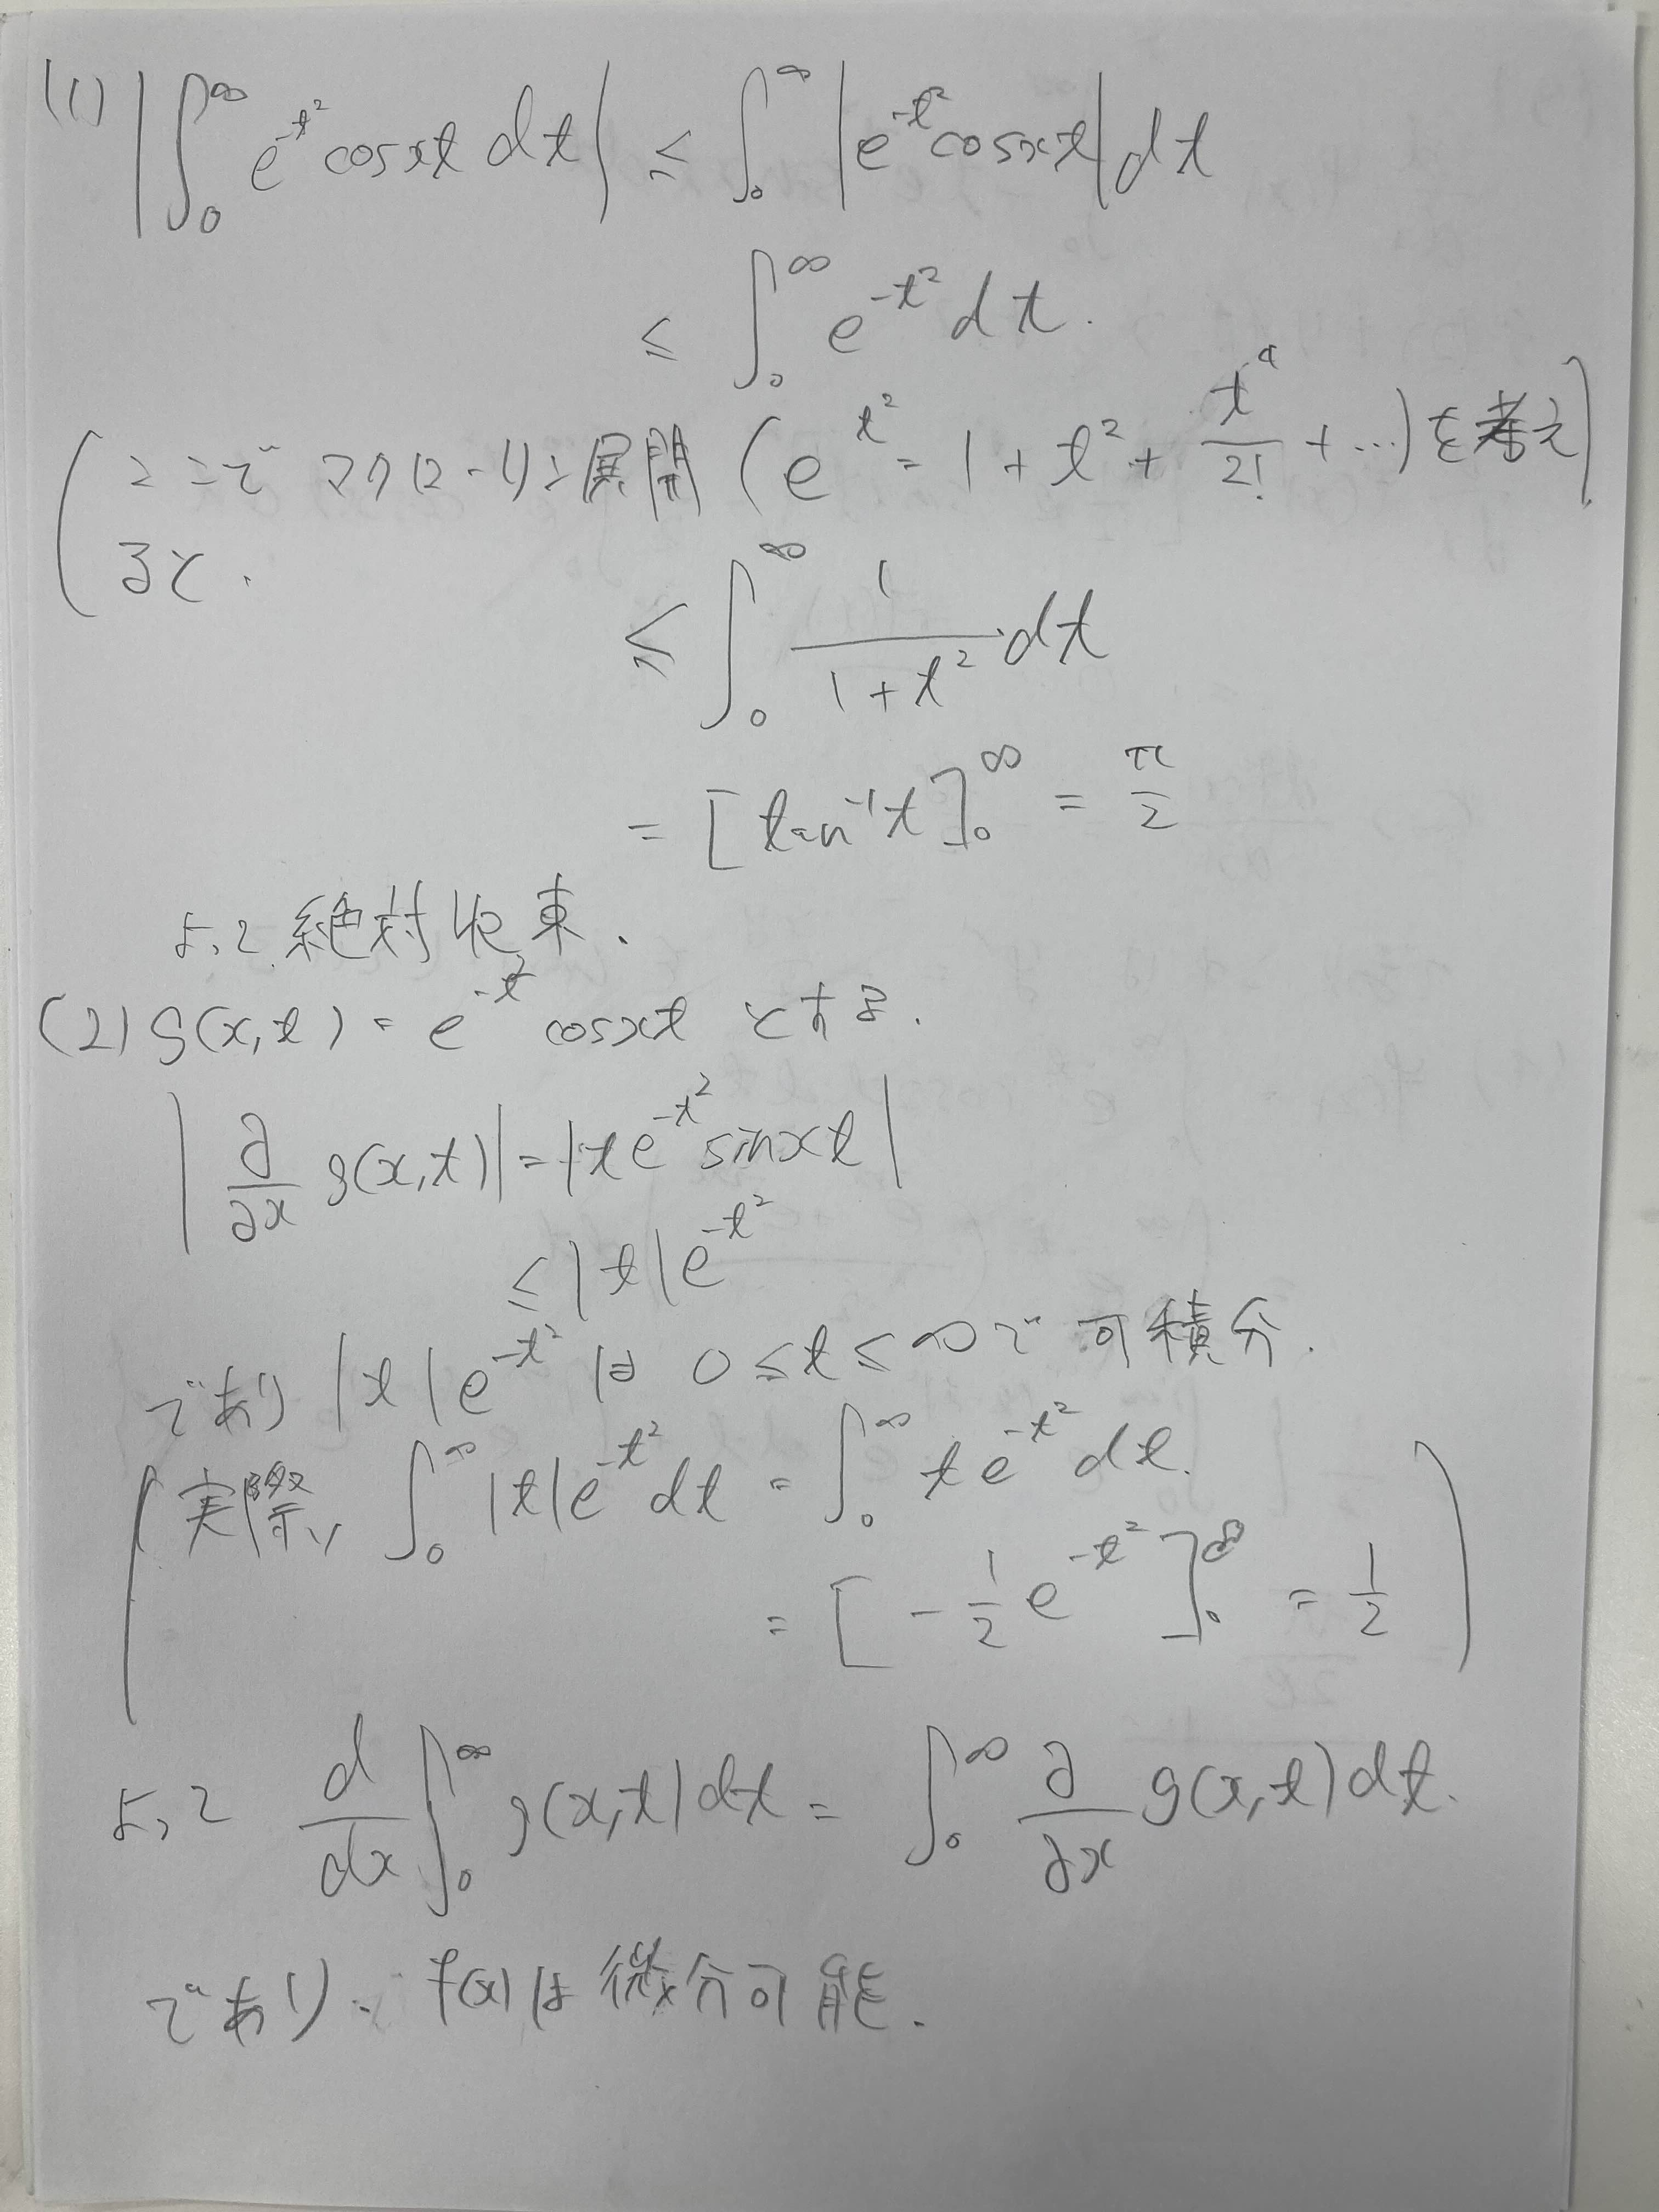 (1) |∫₀^∞ e^{-t²} cosxt dt| ≤ ∫₀^∞ |e^{-t²} cosxt| dt
≤ ∫₀^∞ e^{-t²} dt.
(ここで マクローリン展開 (e^{t²} = 1 + t² + t⁴/2! + …) を考え
ると.)
≤ ∫₀^∞ 1/(1+t²) dt
= [tan⁻¹t]₀^∞ = π/2
よって 絶対収束.
(2) g(x,t) = e^{-t²} cosxt とする.
|∂/∂x g(x,t)| = |t e^{-t²} sinxt|
≤ |t| e^{-t²}
であり |t| e^{-t²} は 0 ≤ t ≤ ∞で 可積分.
(実際、 ∫₀^∞ |t| e^{-t²} dt = ∫₀^∞ t e^{-t²} dt.
= [-1/2 e^{-t²}]₀^∞ = 1/2)
よって d/dx ∫₀^∞ g(x,t) dt = ∫₀^∞ ∂/∂x g(x,t) dt.
であり、 f(x) は 微分可能.